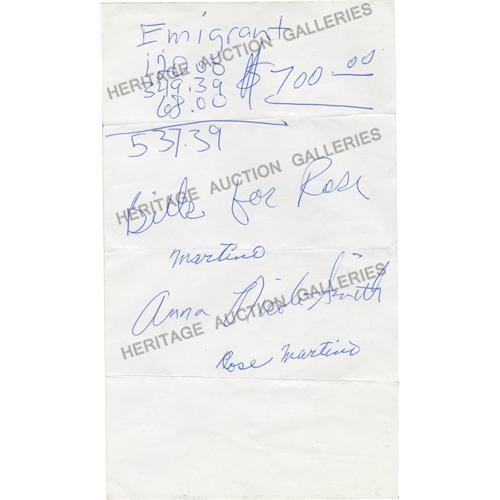 Emigrant
120.00
349.39 $700.00
68.00
537.39
Bills for Rose
Martino
Anna Nicole Smith
Rose Martino
HERITAGE AUCTION GALLERIES
HERITAGE AUCTION GALLERIES
HERITAGE AUCTION GALLERIES
HERITAGE AUCTION GALLERIES